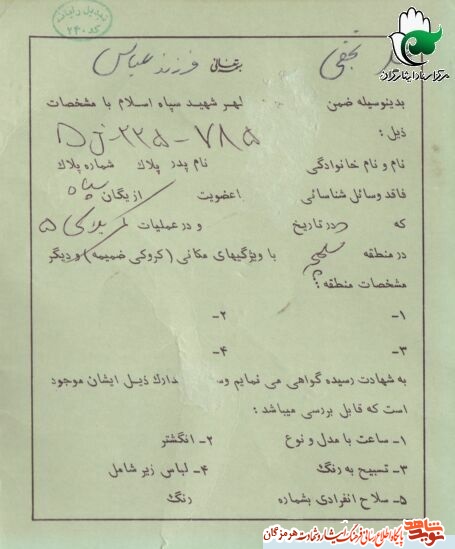 تبدیل رایانه
کد ۲۴۰
مرکز اسناد ایثارگران
نجفی فرزند عباس
بدینوسیله ضمن لهر شهید سپاه اسلام با مشخصات
ذیل :
۷۸۵-۲۲۵
نام و نام خانوادگی نام پدر پلاک شماره پلاك
فاقد وسائل شناسائی اعضویت از یگان سپاه
که در تاریخ و در عملیات کربلای ۵
در منطقه شلمچه با ویژگیهای مکانی (کروکی ضمیمه) و دیگر
مشخصات منطقه :
۱- ۲-
۳- ۴-
به شهادت رسیده گواهی می نمایم وس دارك ذیل ایشان موجود
است که قابل بررسی میباشد :
۱- ساعت با مدل و نوع ۲- انگشتر
۳- تسبیح به رنگ ۴- لباس زیر شامل
۵- سلاح انفرادی بشماره رنگ
نوید شاهد
پایگاه اطلاع رسانی فرهنگ ایثار و شهادت هرمزگان